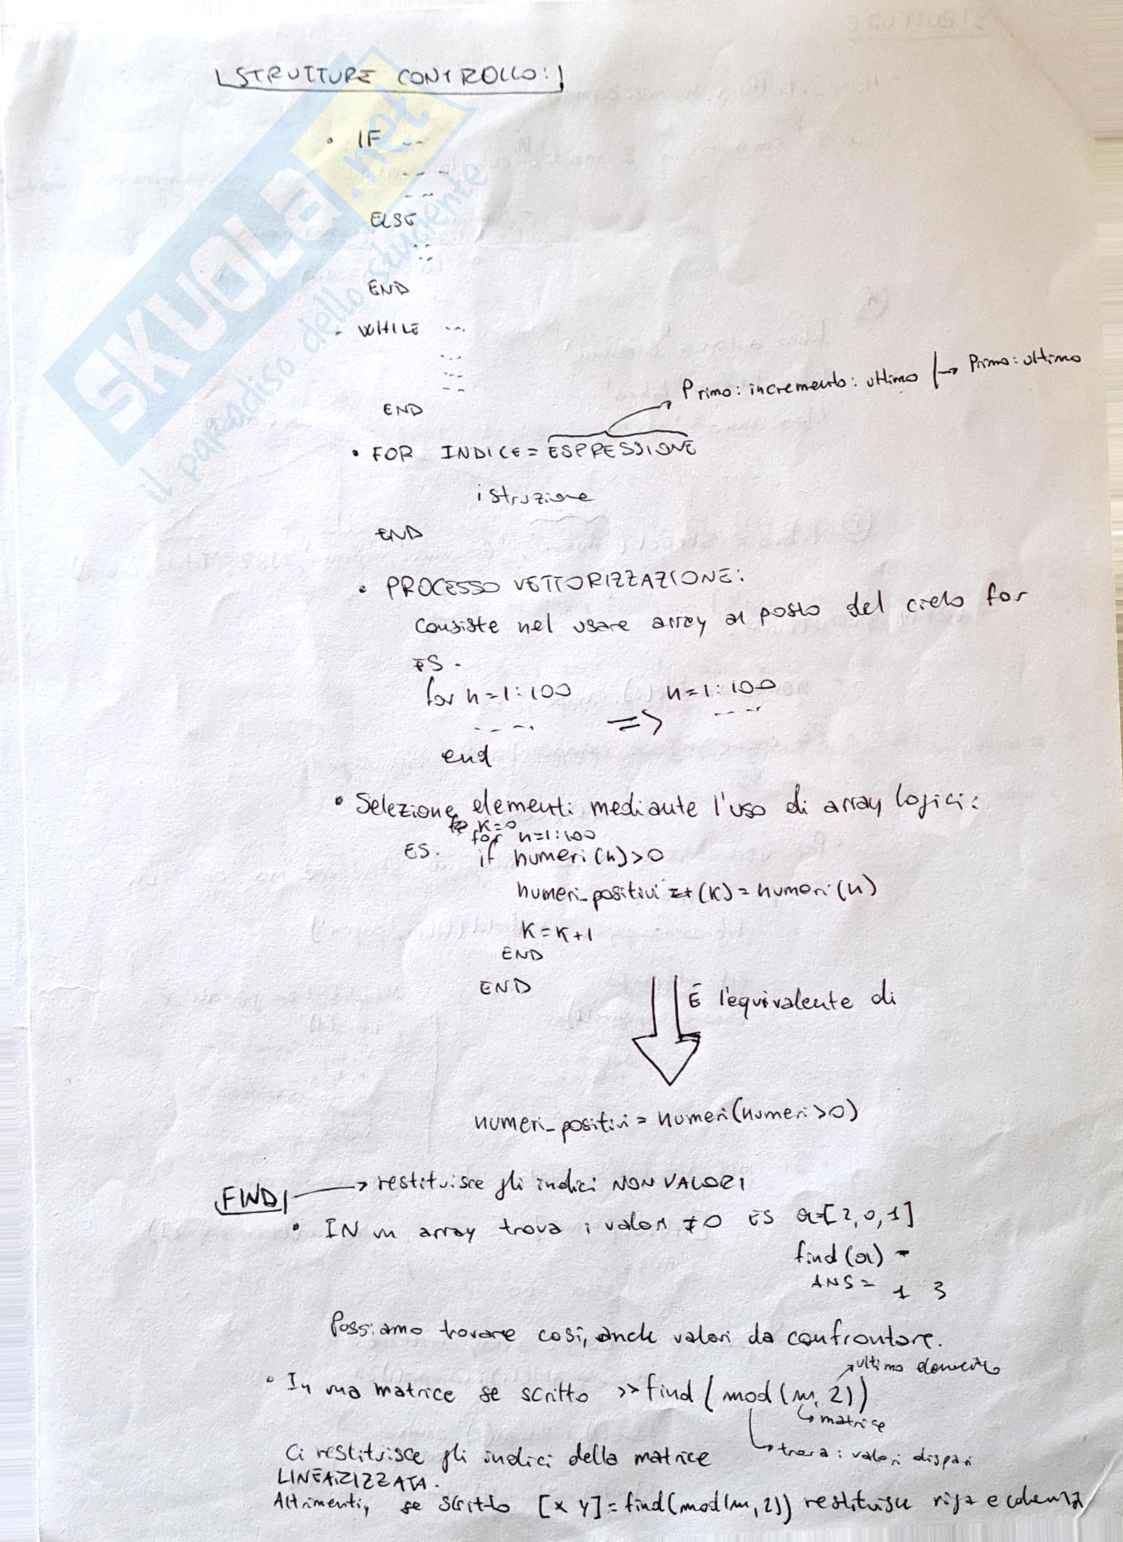 STRUTTURE CONTROLLO:
• IF ---
----
---
ELSE
--
--
END
• WHILE ---
---
---
END
Primo: incremento: ultimo → Primo: ultimo
• FOR INDICE = ESPRESSIONE
istruzione
END
• PROCESSO VETTORIZZAZIONE:
Consiste nel usare array al posto del ciclo for
ES.
for n=1:100 ⇒ n=1:100
---- ----
end
• Selezione elementi mediante l'uso di array logici:
K=0
for n=1:100
ES. if numeri(n)>0
numeri_positivi (K) = numeri(n)
K=K+1
END
END
È l'equivalente di
numeri_positivi = numeri(numeri>0)
FIND → restituisce gli indici NON VALORI
• IN un array trova i valori ≠0 ES a=[2,0,1]
find(a)
ANS= 1 3
Possiamo trovare così, anche valori da confrontare.
ultimo elemento
• In una matrice se scritto >> find(mod(m,2))
matrice
trova i valori dispari
Ci restituisce gli indici della matrice
LINEARIZZATA.
Altrimenti, se scritto [x y]=find(mod(m,2)) restituisce riga e colonna
SKUOLA.net
il paradiso dello studente